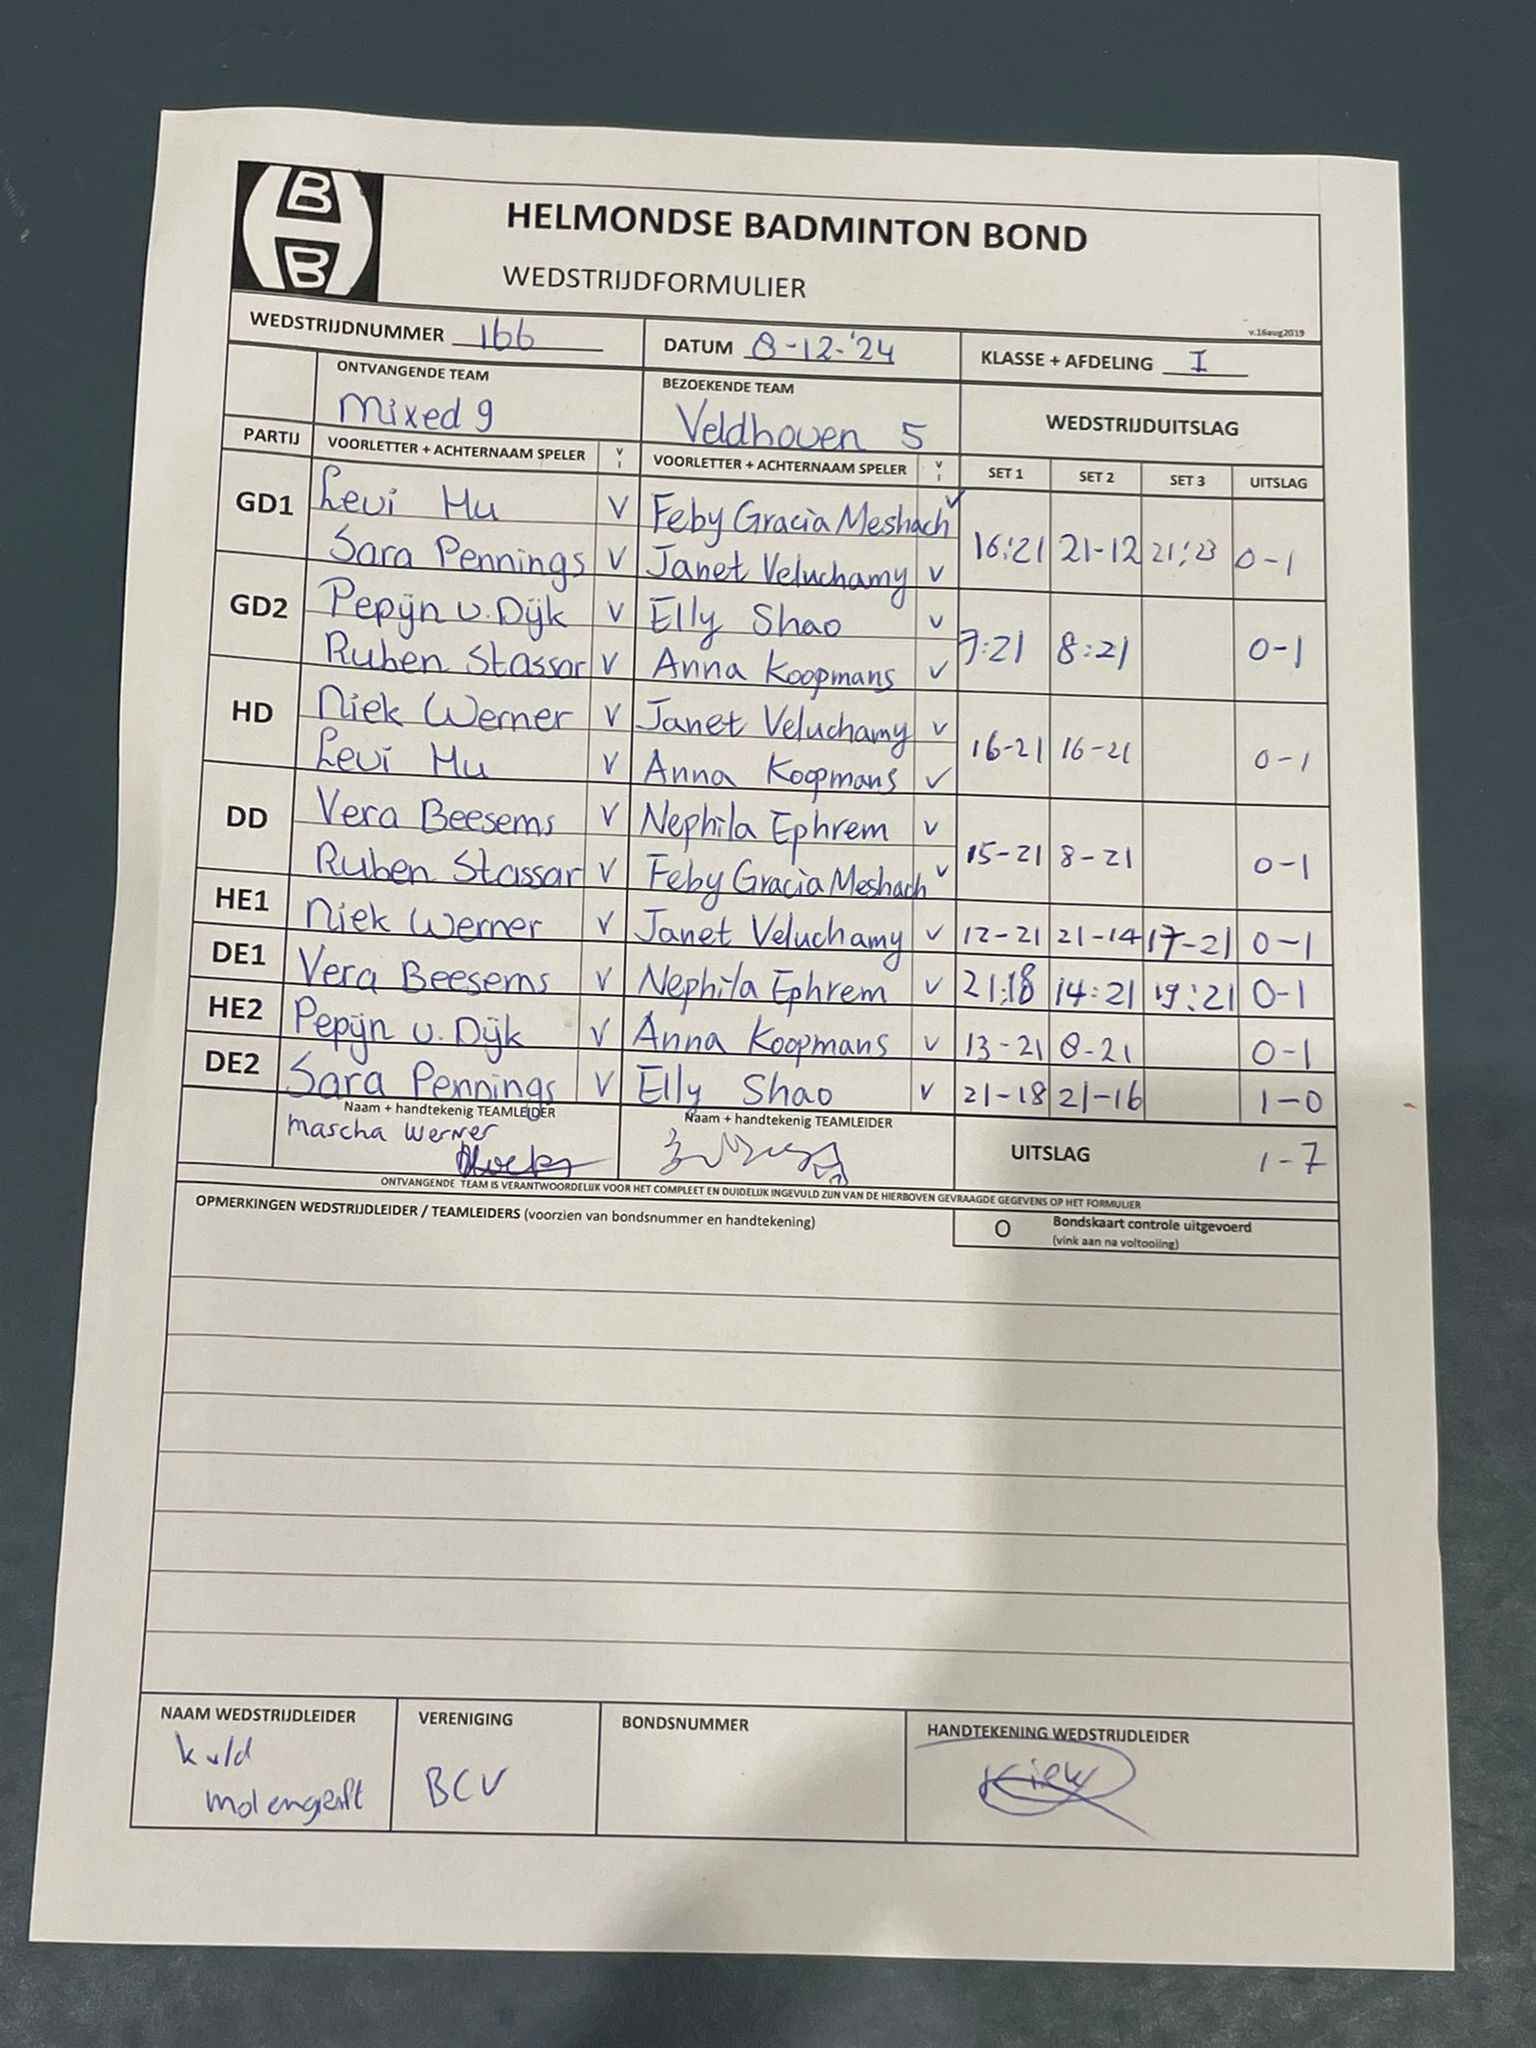 B
B
HELMONDSE BADMINTON BOND
WEDSTRIJDFORMULIER
v.16aug2019
WEDSTRIJDNUMMER 166 DATUM 8-12-'24 KLASSE + AFDELING I
ONTVANGENDE TEAM BEZOEKENDE TEAM WEDSTRIJDUITSLAG
Mixed 9 Veldhoven 5
PARTIJ VOORLETTER + ACHTERNAAM SPELER V I VOORLETTER + ACHTERNAAM SPELER V I SET 1 SET 2 SET 3 UITSLAG
GD1 Levi Hu V Feby Gracia Meshach V
Sara Pennings V Janet Veluchamy V 16:21 21-12 21:23 0-1
GD2 Pepijn v. Dijk V Elly Shao V
Ruben Stassar V Anna Koopmans V 9:21 8:21 0-1
HD Niek Werner V Janet Veluchamy V
Levi Hu V Anna Koopmans V 16-21 16-21 0-1
DD Vera Beesems V Nephila Ephrem V
Ruben Stassar V Feby Gracia Meshach V 15-21 8-21 0-1
HE1 Niek Werner V Janet Veluchamy V 12-21 21-14 17-21 0-1
DE1 Vera Beesems V Nephila Ephrem V 21:18 14:21 19:21 0-1
HE2 Pepijn v. Dijk V Anna Koopmans V 13-21 8-21 0-1
DE2 Sara Pennings V Elly Shao V 21-18 21-16 1-0
Naam + handtekenig TEAMLEIDER Naam + handtekenig TEAMLEIDER
Mascha Werner
UITSLAG 1-7
ONTVANGENDE TEAM IS VERANTWOORDELIJK VOOR HET COMPLEET EN DUIDELIJK INGEVULD ZIJN VAN DE HIERBOVEN GEVRAAGDE GEGEVENS OP HET FORMULIER
OPMERKINGEN WEDSTRIJDLEIDER / TEAMLEIDERS (voorzien van bondsnummer en handtekening)
O Bondskaart controle uitgevoerd
(vink aan na voltooiing)
NAAM WEDSTRIJDLEIDER VERENIGING BONDSNUMMER HANDTEKENING WEDSTRIJDLEIDER
k v/d
BCV